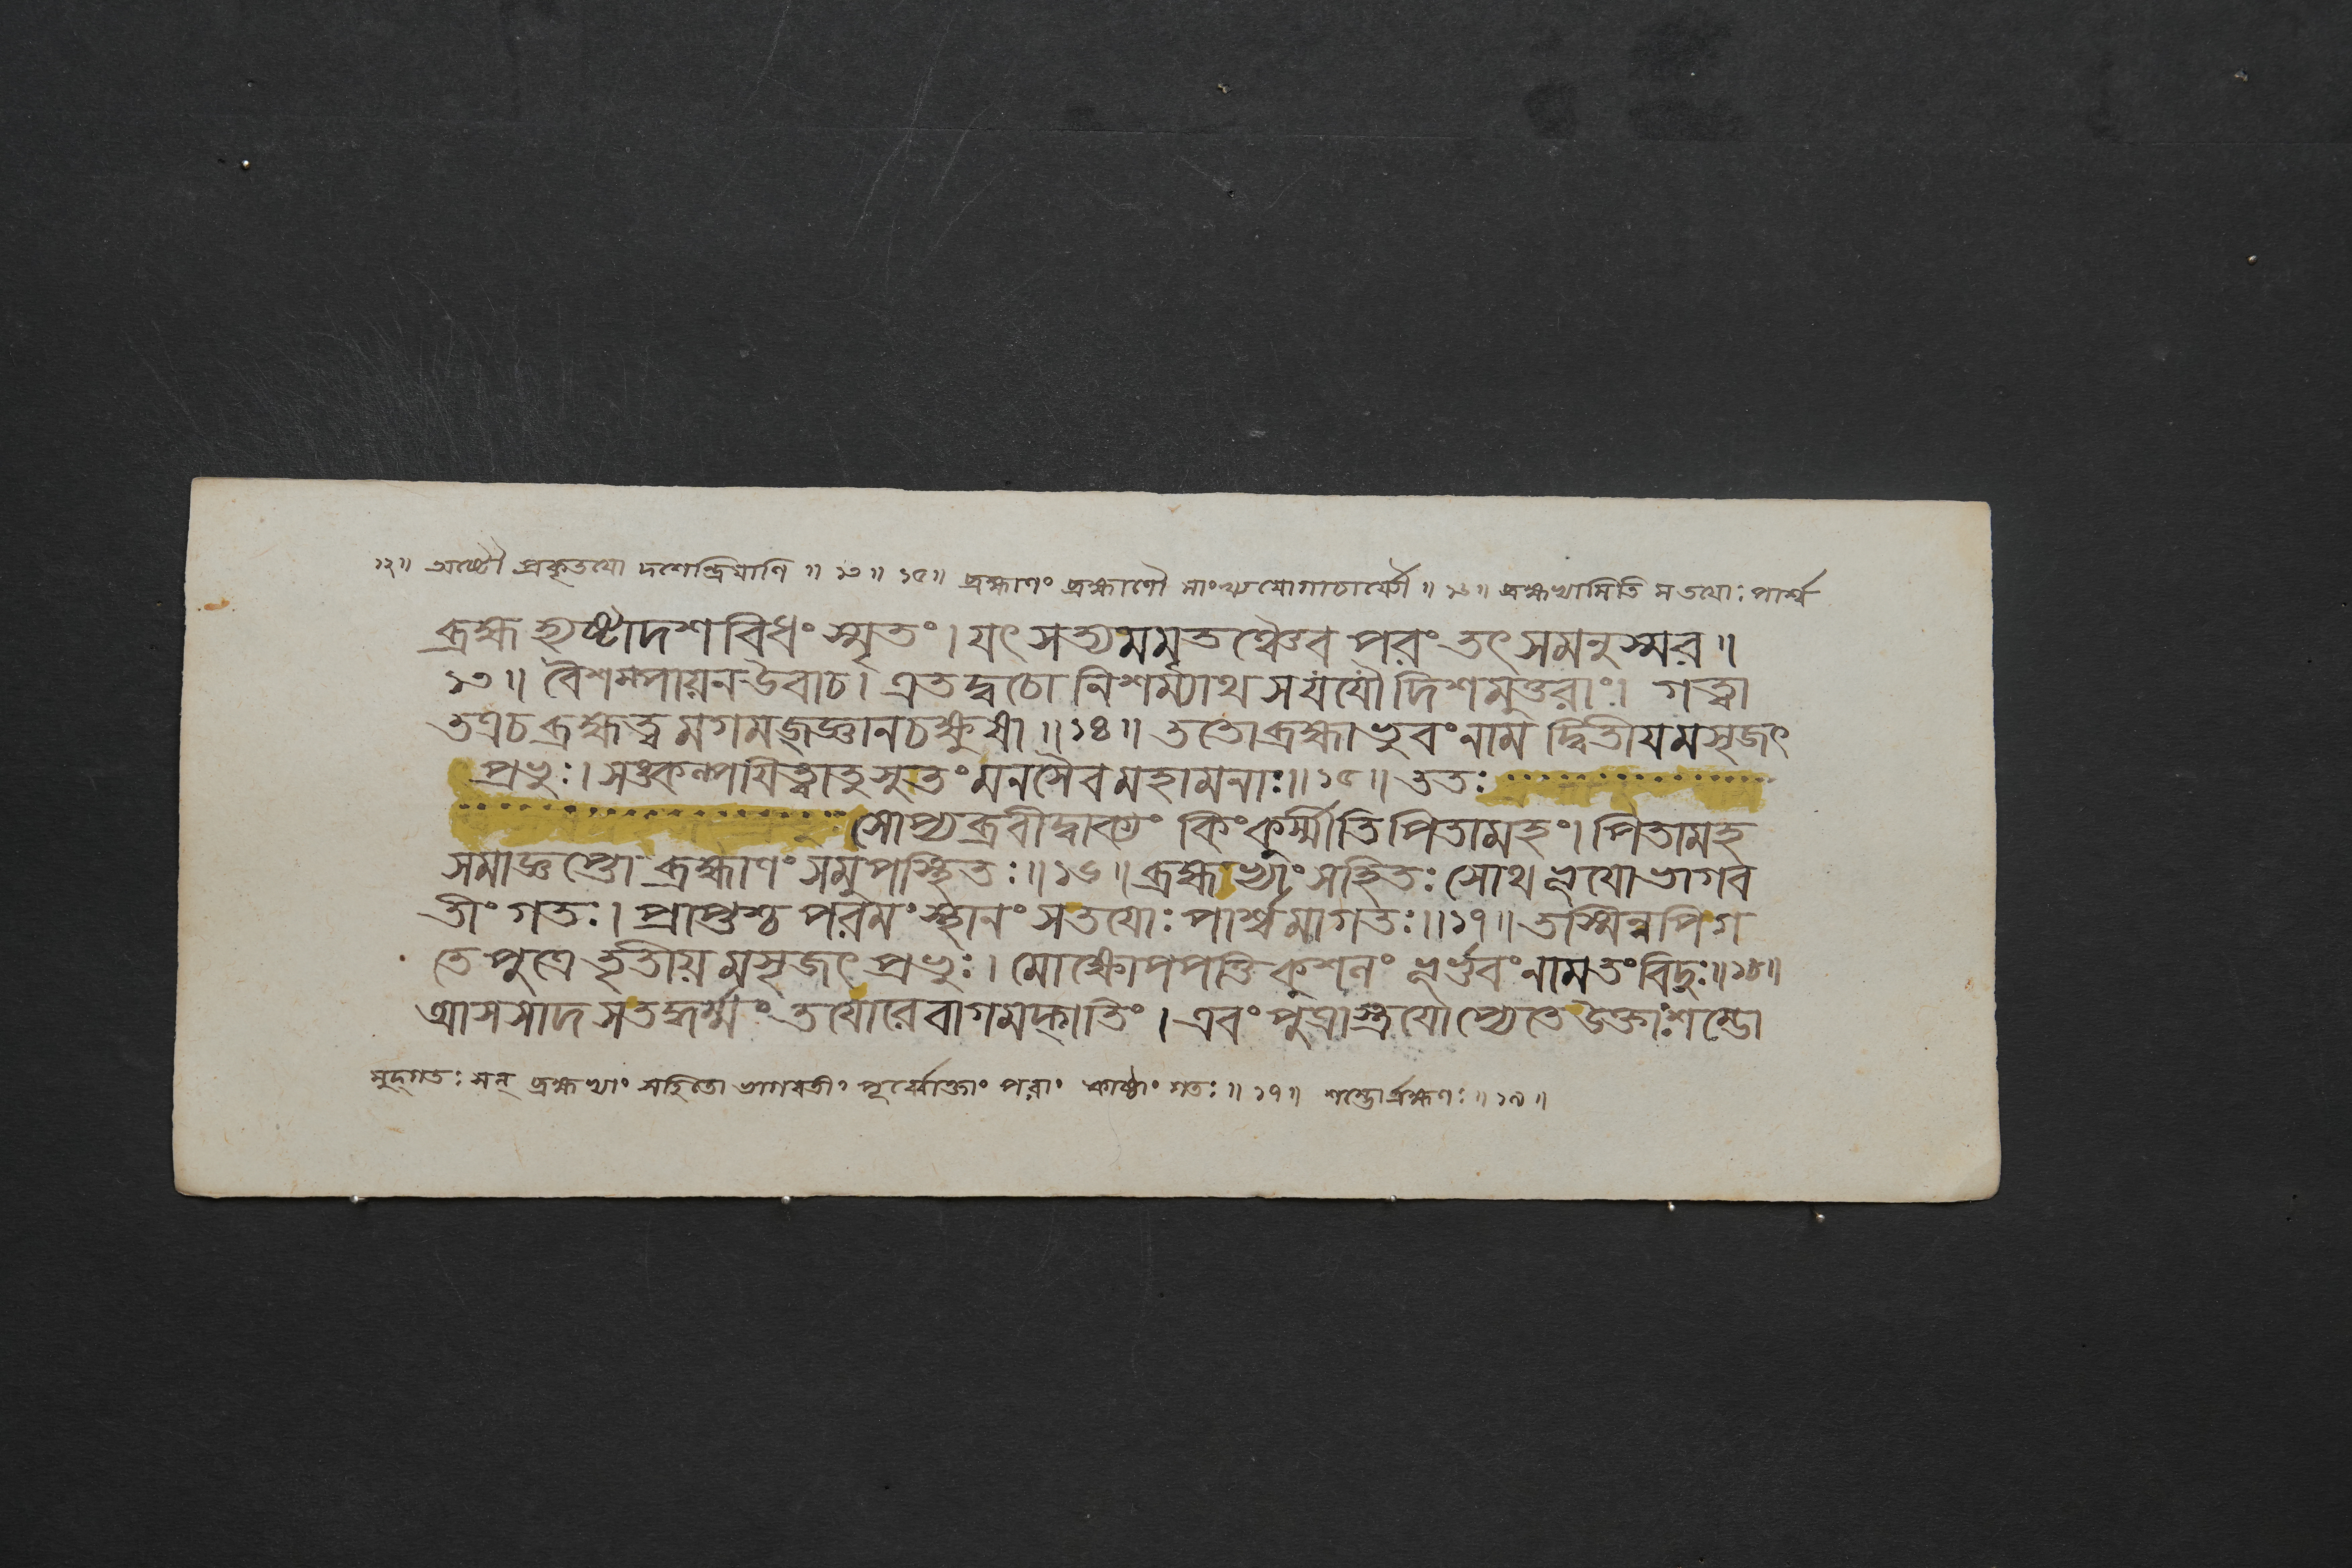 ১২॥ অষ্টৌ প্রকৃতযো দশেন্দ্রিযাণি ॥ ১৩ ॥ ১৫॥ ব্রহ্মাণং ব্রহ্মাণৌ সাংখ্যযোগাচার্য্যৌ ॥ ১৬॥ ব্রহ্মখ্যামিতি সতযোঃ পার্শ্ব
ব্রহ্ম হ্যষ্টাদশবিধং স্মৃতং। যৎ সত্যমমৃতঞ্চৈব পরং তৎ সমনুস্মর॥
১৩॥ বৈশম্পায়নউবাচ। এতদ্বচো নিশম্যাথ সযযৌ দিশমুত্তরাং। গত্বা
তত্রচ ব্রহ্মত্বমগমজ্জ্ঞানচক্ষুষা॥১৪॥ ততোব্রহ্মা ভুবংনাম দ্বিতীযমসৃজৎ
প্রভুঃ। সঙ্কল্পযিত্বাতু সুতং মনসৈব মহামনাঃ॥১৫॥ ততঃ
সোপ্যব্রবীদ্বাক্যং কিংকুর্ম্মীতি পিতামহং। পিতামহ
সমাজ্ঞপ্তো ব্রহ্মাণং সমুপস্থিতঃ॥১৬॥ ব্রহ্মাখ্যাং সহিতঃ সোথ ভূযোভাগব
তীং গতঃ। প্রাপ্তশ্চ পরমং স্থানং সতযোঃ পার্শ্বমাগতঃ॥১৭॥ তস্মিন্নপিগ
তে পুত্রে তৃতীয়মসৃজৎ প্রভুঃ। মোক্ষোপপত্তিকুশলং ভূর্ভুবংনামতংবিদুঃ॥১৮॥
আসসাদ সতদ্ধর্ম্মং তযোরেবাগমদ্গতিং। এবং পুত্রাস্ত্রযোপ্যেতে উক্তাঃশম্ভো
মুদ্গতঃ সন্ ব্রহ্মখ্যাং সহিতো ভাগবতীং পূর্ব্বোক্তাং পরাং কাষ্ঠাং গতঃ॥ ১৭॥ শম্ভোর্ব্রহ্মণঃ॥ ১৯॥